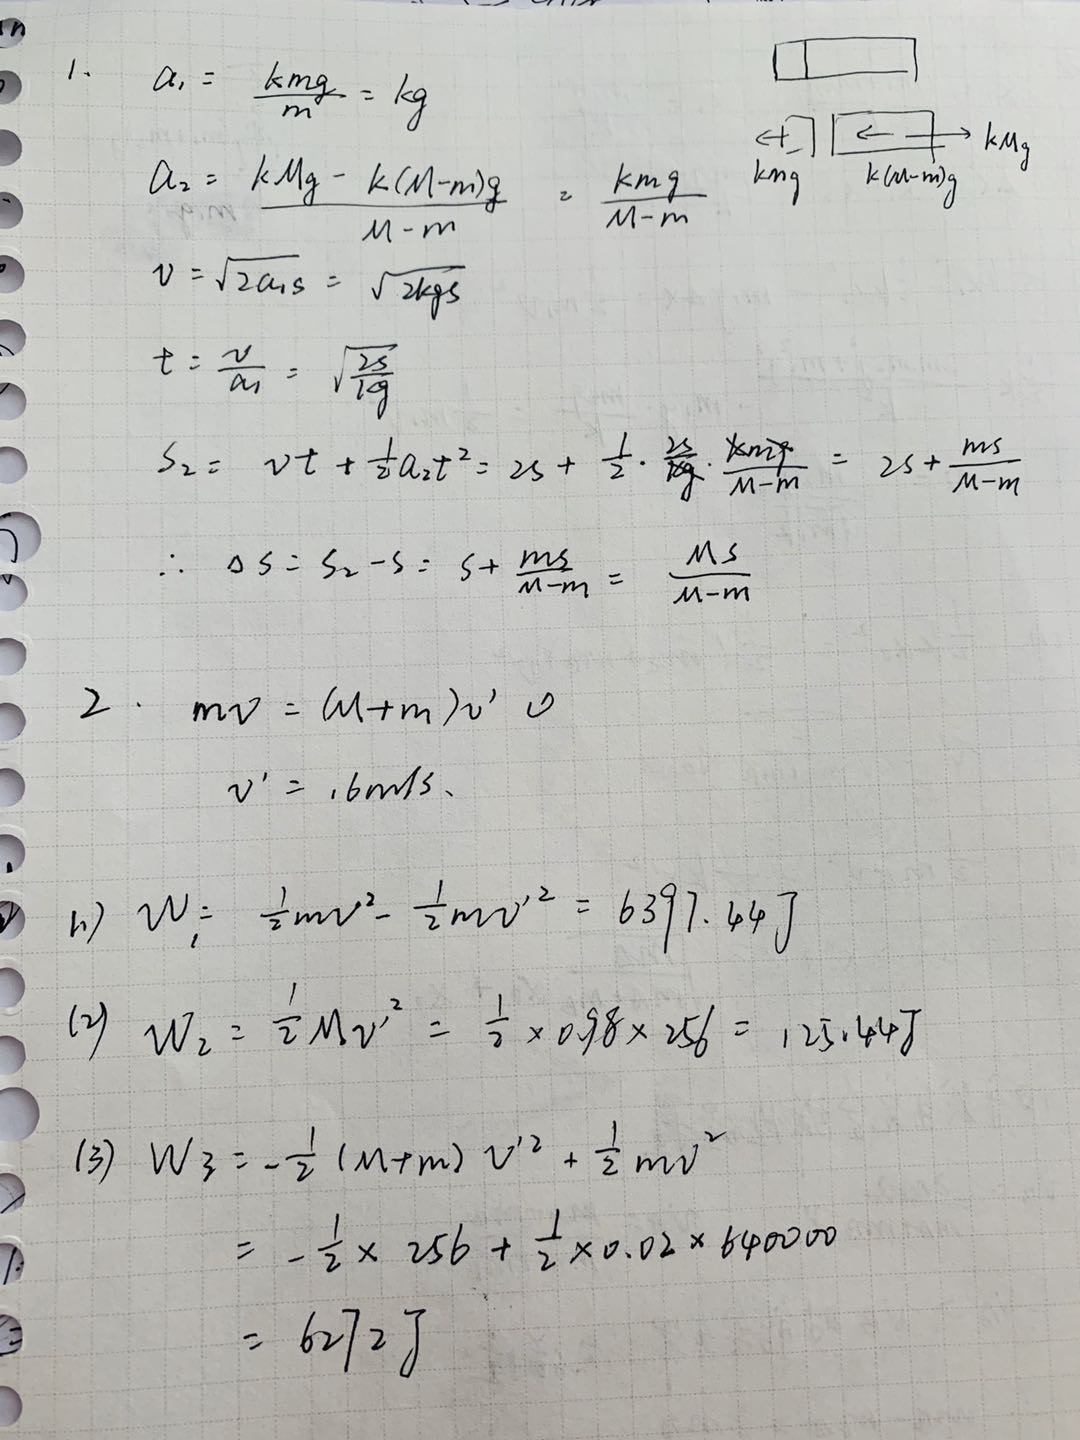 1. a₁ = kmg/m = kg
a₂ = (kMg - k(M-m)g)/(M-m) = kmg/(M-m)
kmg k(M-m)g kMg
v = √(2a₁s) = √(2kgs)
t = v/a₁ = √(2s/kg)
S₂ = vt + ½a₂t² = 2s + ½ · 2s/kg · kmg/(M-m) = 2s + ms/(M-m)
∴ ΔS = S₂ - S = S + ms/(M-m) = MS/(M-m)
2. mv = (M+m)v' ①
v' = 16m/s.
(1) W₁ = ½mv² - ½mv'² = 6397.44J
(2) W₂ = ½Mv'² = ½ × 0.98 × 256 = 125.44J
(3) W₃ = -½(M+m)v'² + ½mv²
= -½ × 256 + ½ × 0.02 × 640000
= 6272J